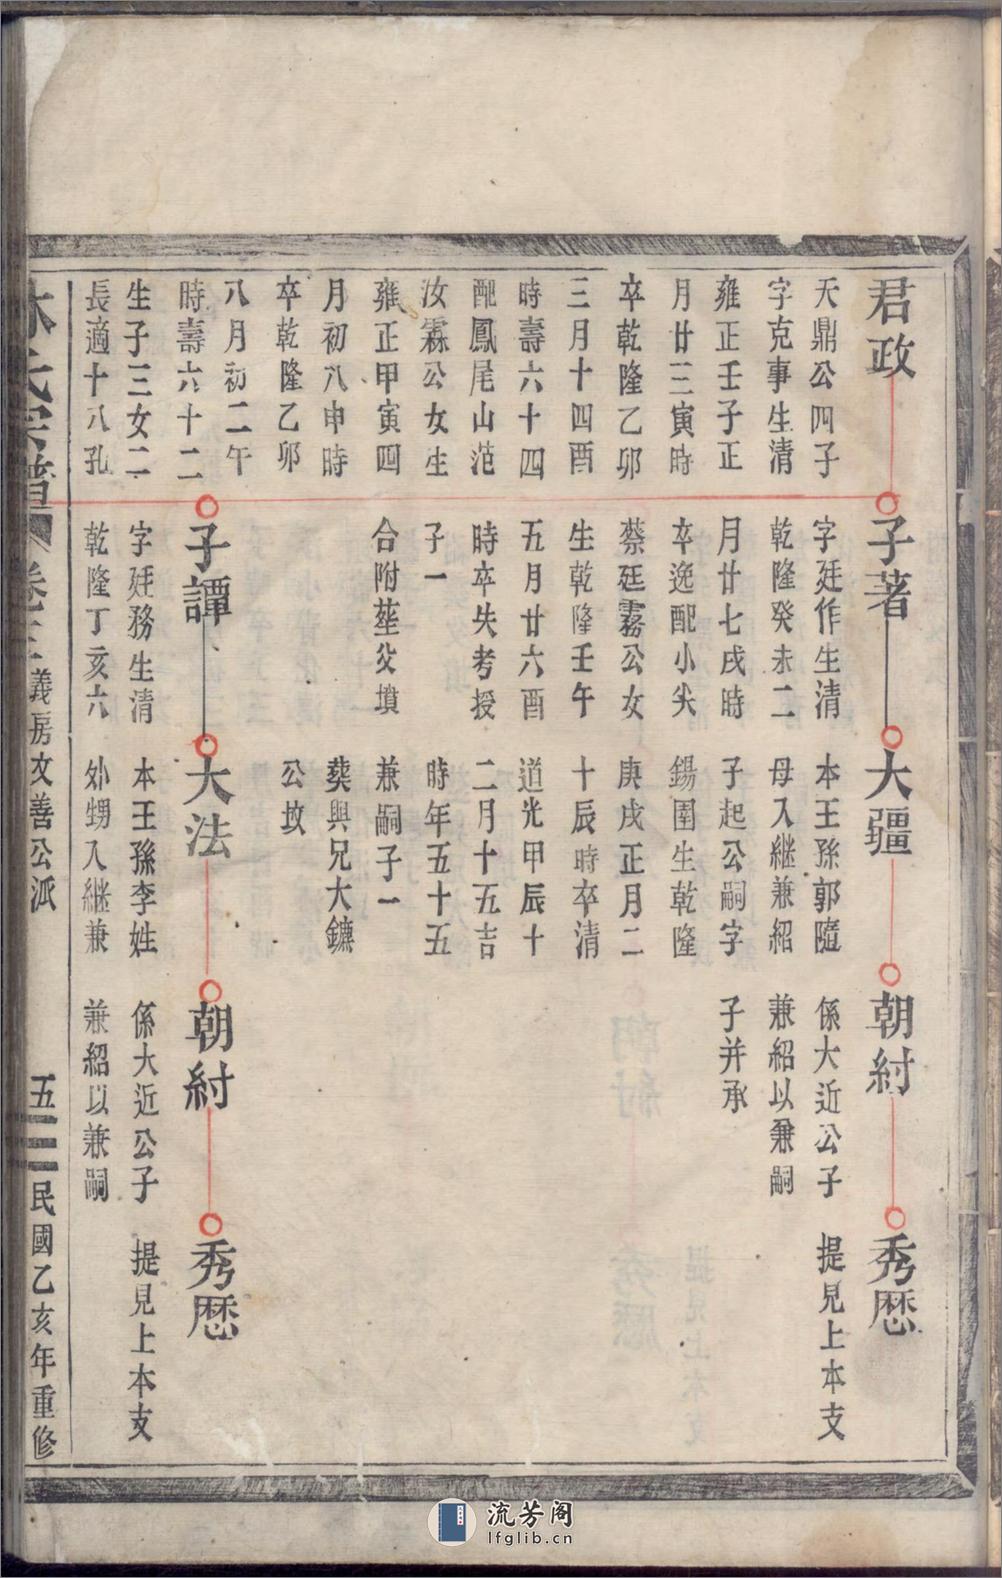 君政
天鼎公四子
字克事生清
雍正壬子正
月廿三寅時
卒乾隆乙卯
三月十四酉
時壽六十四
配鳳尾山范
汝霖公女生
雍正甲寅四
月初八申時
卒乾隆乙卯
八月初二午
時壽六十二
生子三女二
長適十八孔
子著
字廷作生清
乾隆癸未二
月廿七戌時
卒逸配小尖
蔡廷霧公女
生乾隆壬午
五月廿六酉
時卒失考授
子一
合附塟父墳
子譚
字廷務生清
乾隆丁亥六
大疆
本王孫郭隨
母入継兼紹
子起公嗣字
鍚圍生乾隆
庚戌正月二
十辰時卒清
道光甲辰十
二月十五吉
時年五十五
兼嗣子一
葬與兄大鑣
公坟
大法
本王孫李姓
外甥入継兼
朝紂
係大近公子
兼紹以兼嗣
子并承
朝紂
係大近公子
兼紹以兼嗣
秀歴
提見上本支
秀歴
提見上本支
林氏宗譜
卷
義房文善公派
五
民國乙亥年重修
流芳阁
lfglib.cn